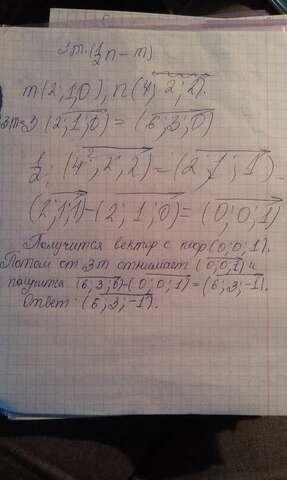 3m-(1/2n-m)
m(2;1;0), n(4; 2; 2).
3m=3 (2;1;0) = (6;3;0)
1/2; (4;2;2) = (2;1;1).
(2;1;1)-(2;1;0)=(0;0;1)
Получится вектор с коор(0;0;1).
Потом от 3m отнимает (0;0;1) и
получится (6;3;0)-(0;0;1)=(6;3;-1).
Ответ: (6;3;-1).